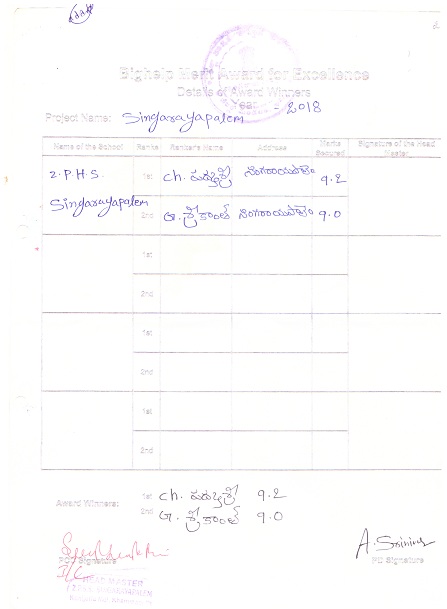 Bighelp Merit Award for Excellence
Details of Award Winners
Year - 2018
Project Name: Singarayapalem
Name of the School Ranks Ranker's Name Address Marks Secured Signature of the Head Master
Z.P.H.S. 1st ch. సింగరాయపాలెం 9.2
Singarayapalem 2nd G. శ్రీకాంత్ సింగరాయపాలెం 9.0
1st
2nd
1st
2nd
1st
2nd
Award Winners: 1st ch. 9.2
2nd G. శ్రీకాంత్ 9.0
A. Srinivas
Signature
PD Signature
I/C
HEAD MASTER